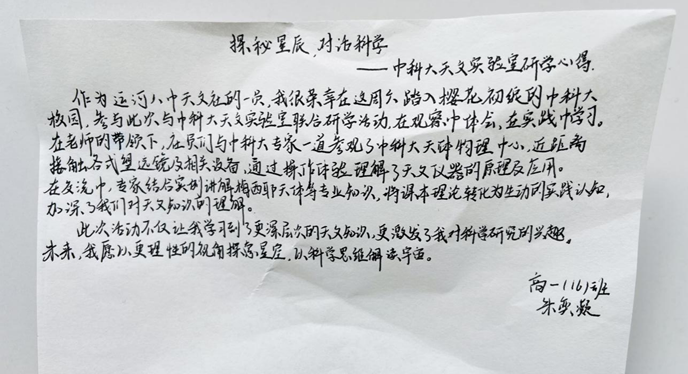 探秘星辰,对话科学
——中科大天文实验室研学心得
作为运河八中天文社的一员,我很荣幸在这周六踏入樱花初绽的中科大
校园,参与此次与中科大天文实验室联合研学活动,在观察中体会,在实践中学习。
在老师的带领下,社员们与中科大专家一道参观了中科大天体物理中心,近距离
接触各式望远镜及相关设备,通过操作体验理解了天文仪器的原理及应用。
在交流中,专家结合实例讲解梅西耶天体等专业知识,将课本理论转化为生动的实践认知,
加深了我们对天文知识的理解。
此次活动不仅让我学习到了更深层次的天文知识,更激发了我对科学研究的兴趣。
未来,我愿以更理性的视角探索星空,以科学思维解读宇宙。
高一(16)班
朱奕凝